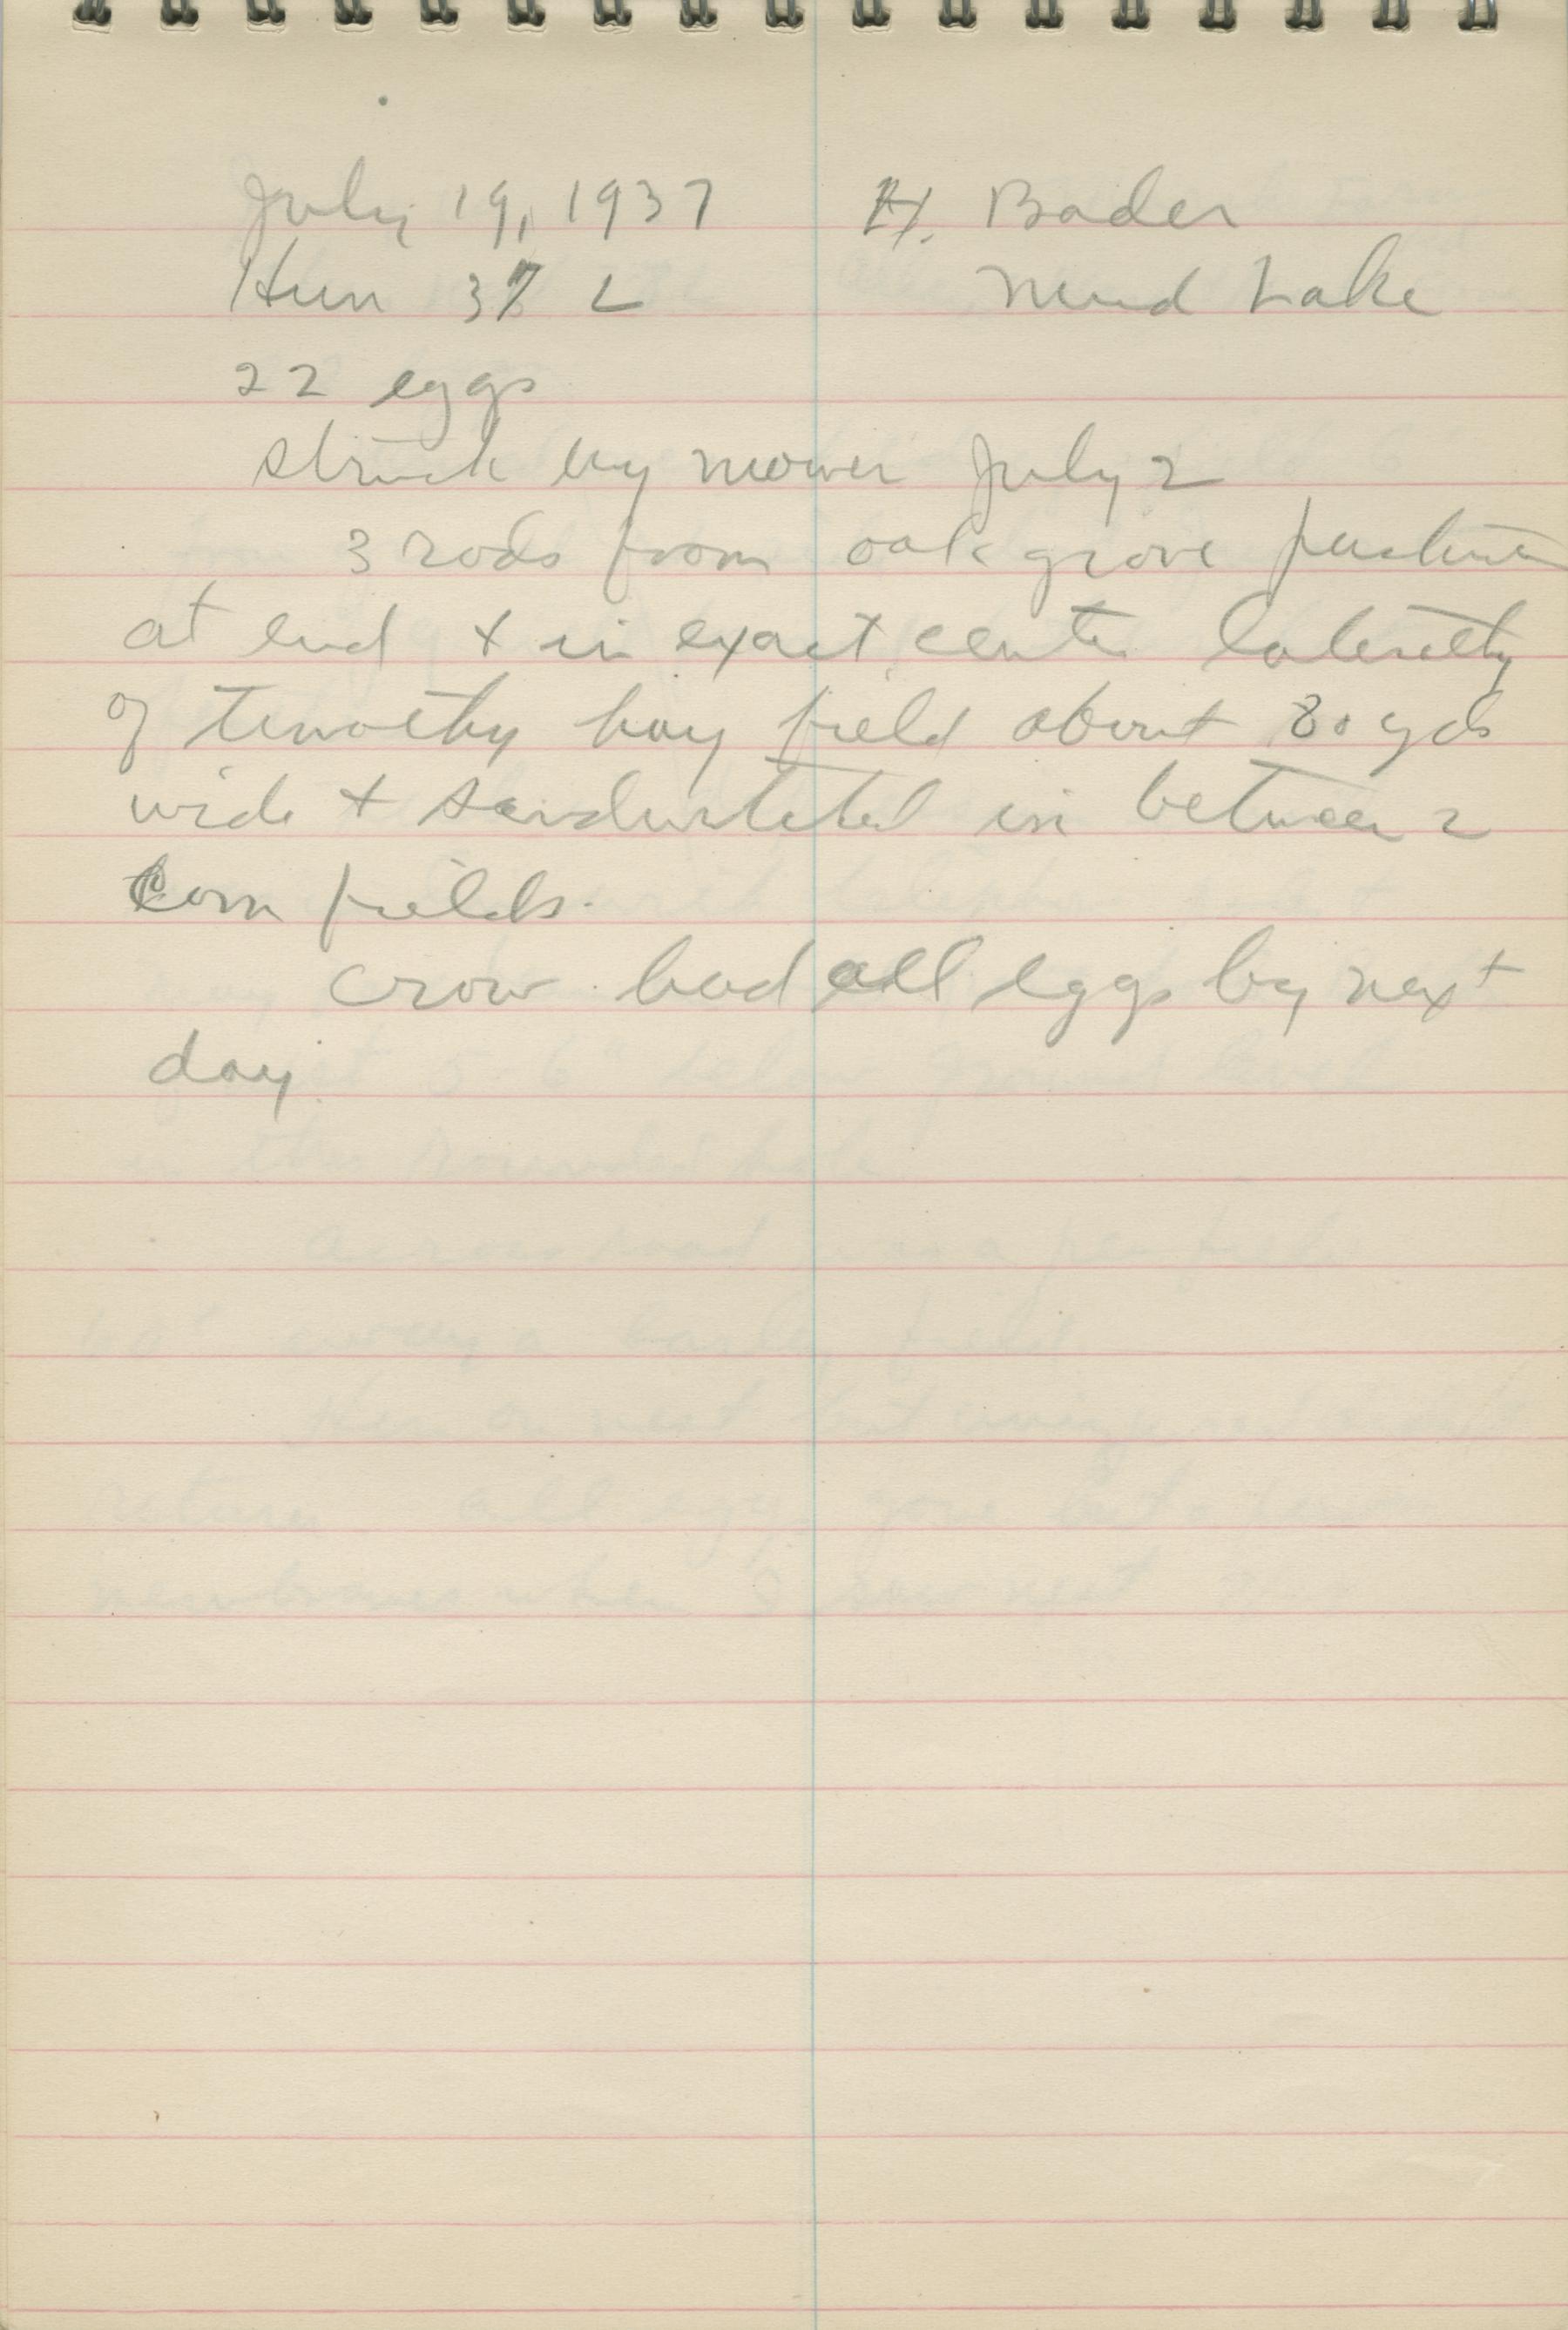 July 19, 1937 H. Bader
Hun 37 L Mud Lake
22 eggs
struck by mower July 2
3 rods from oak grove pasture
at end + in exact center laterally
of timothy hay field about 80 yds
wide + sandwitched in between 2
corn fields.
crow had all eggs by next
day.